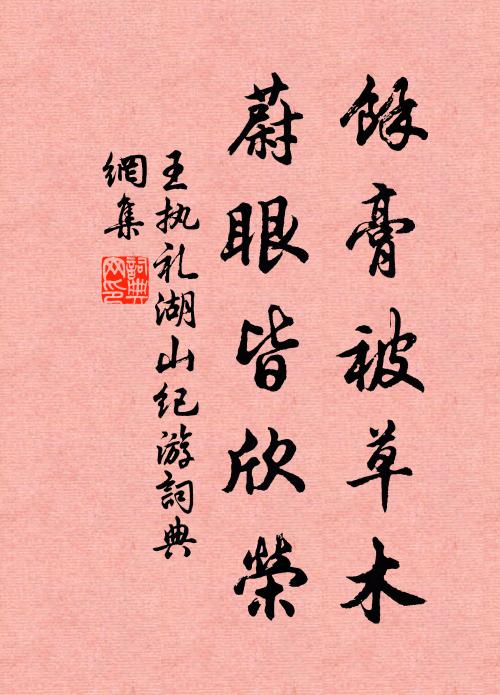 餘膏被草木
蔚眼皆欣榮
王执礼湖山纪游詞典
網集
詞典
网印